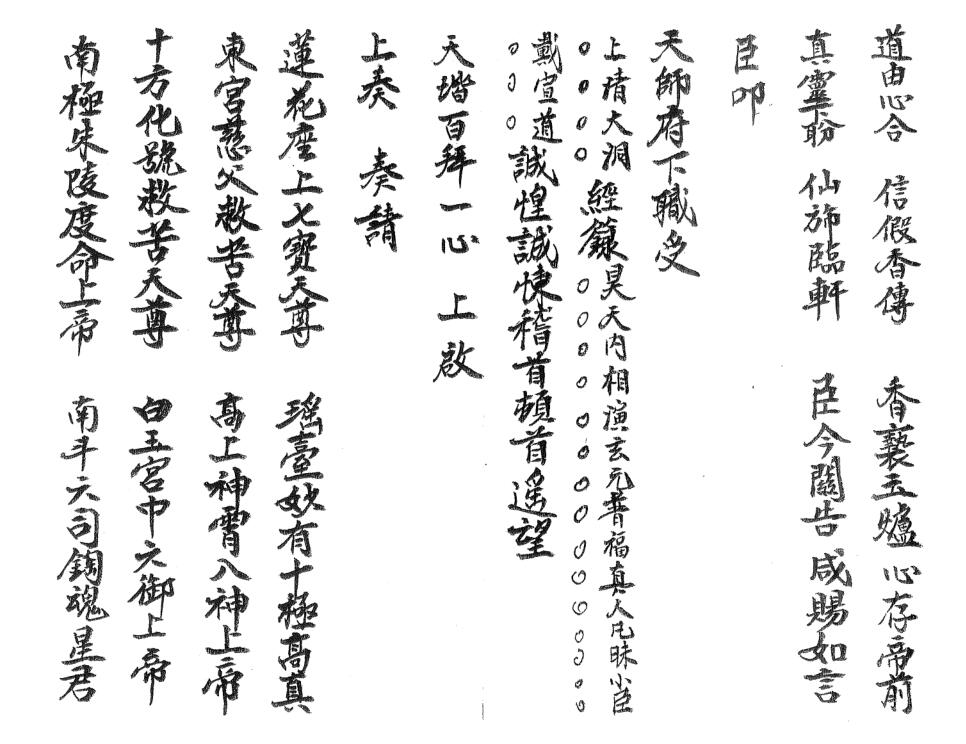 道由心合　信假香傳　香爇玉爐心存帝前
真靈下盼　仙旆臨軒　臣今關告咸賜如言
臣叩
天師府下職受
上清大洞經籙昊天内相演玄元普福真人凡昧小臣
○○○○○○○○○○○○○○○○
戴宣道誠惶誠悚稽首頓首遥望
○○○
天堦百拜一心　上啟
上奏　奏請
蓮花座上七寶天尊　瑶臺妙有十極高真
東宮慈父救苦天尊　高上神霄八神上帝
十方化號救苦天尊　白玉宮中六御上帝
南極朱陵度命上帝　南斗六司鈎魂星君